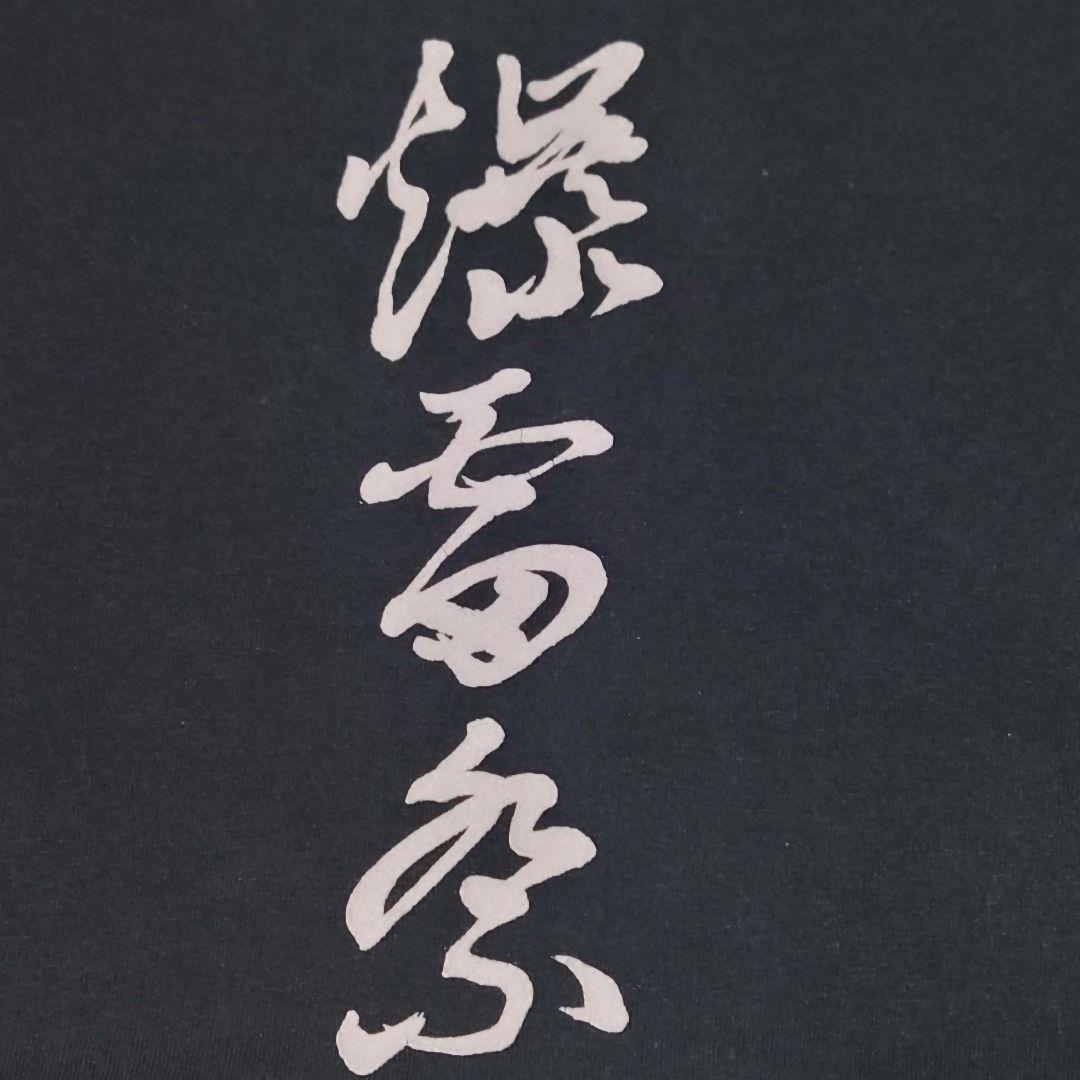 爆雷祭